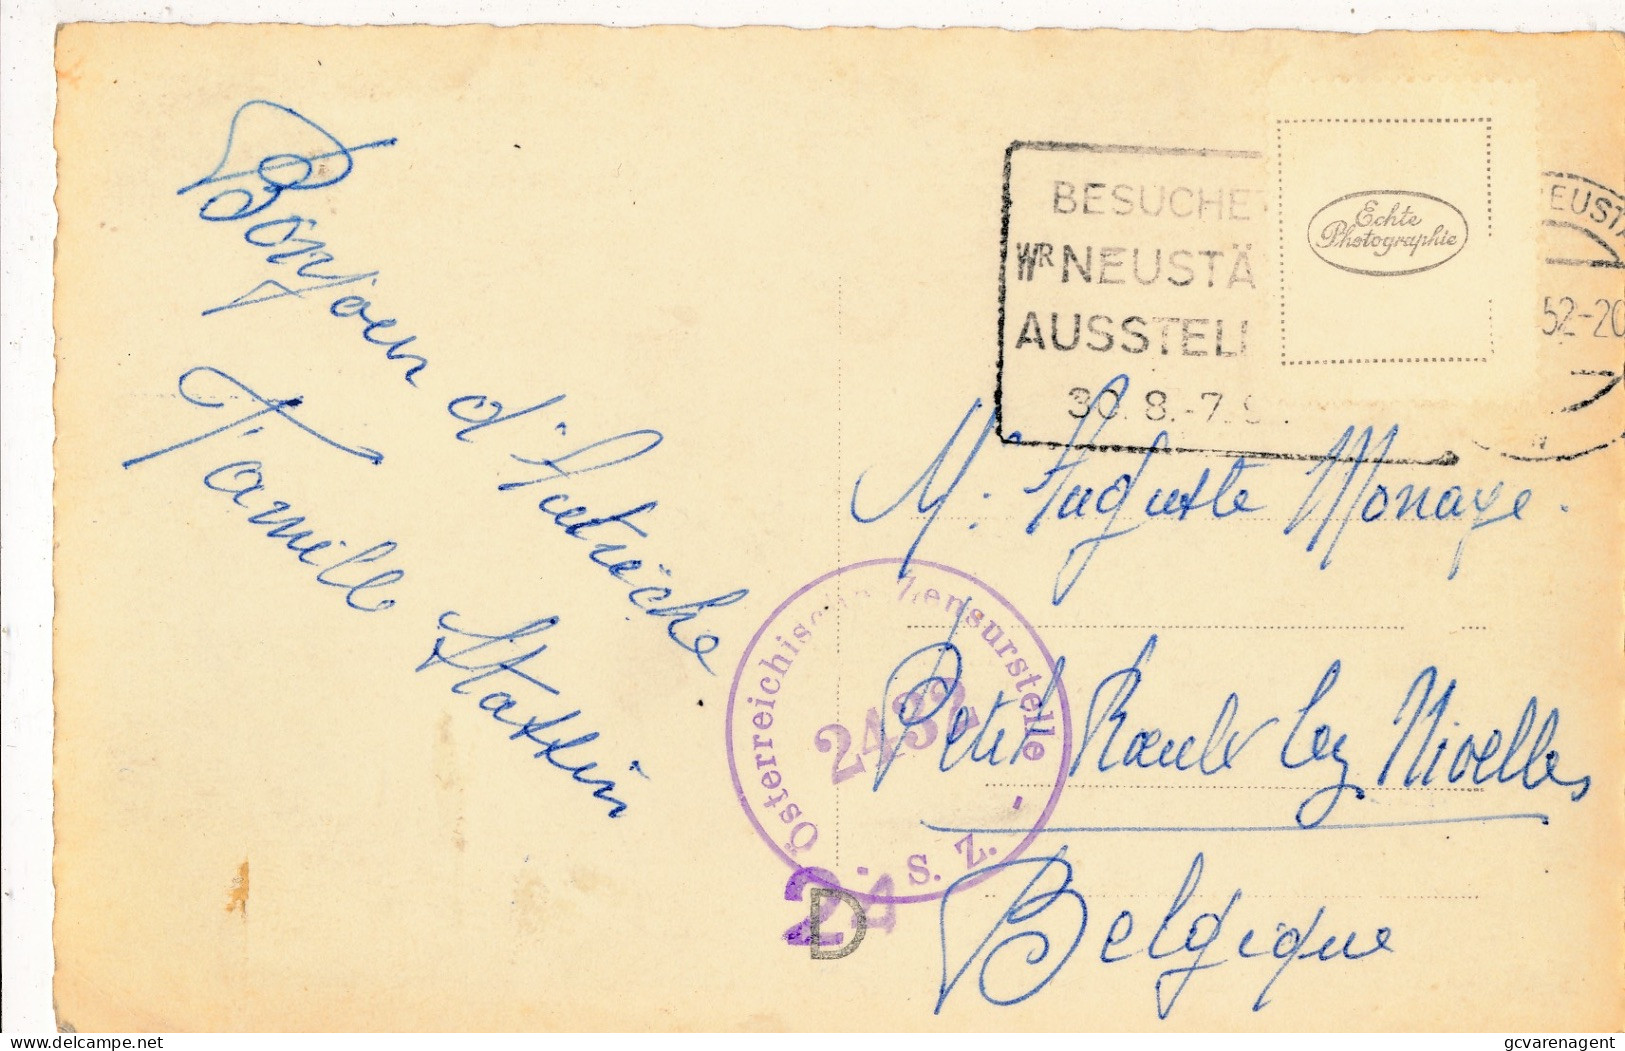 Bonjoeu d'Autriche
Famille Stassin
BESUCHE
WR NEUSTÄ
AUSSTELL
30. 8.-7. 9.
Echte
Photographie
EUSTA
52-20
M. Auguste Monaye.
Petit Roeulx lez Nivelles
Belgique
Österreichische Zensurstelle
2432
S. Z.
24
D
delcampe.net
gcvarenagent